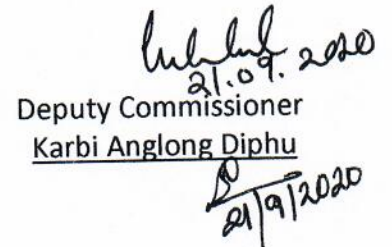 21.09.2020
Deputy Commissioner
Karbi Anglong Diphu
21/9/2020